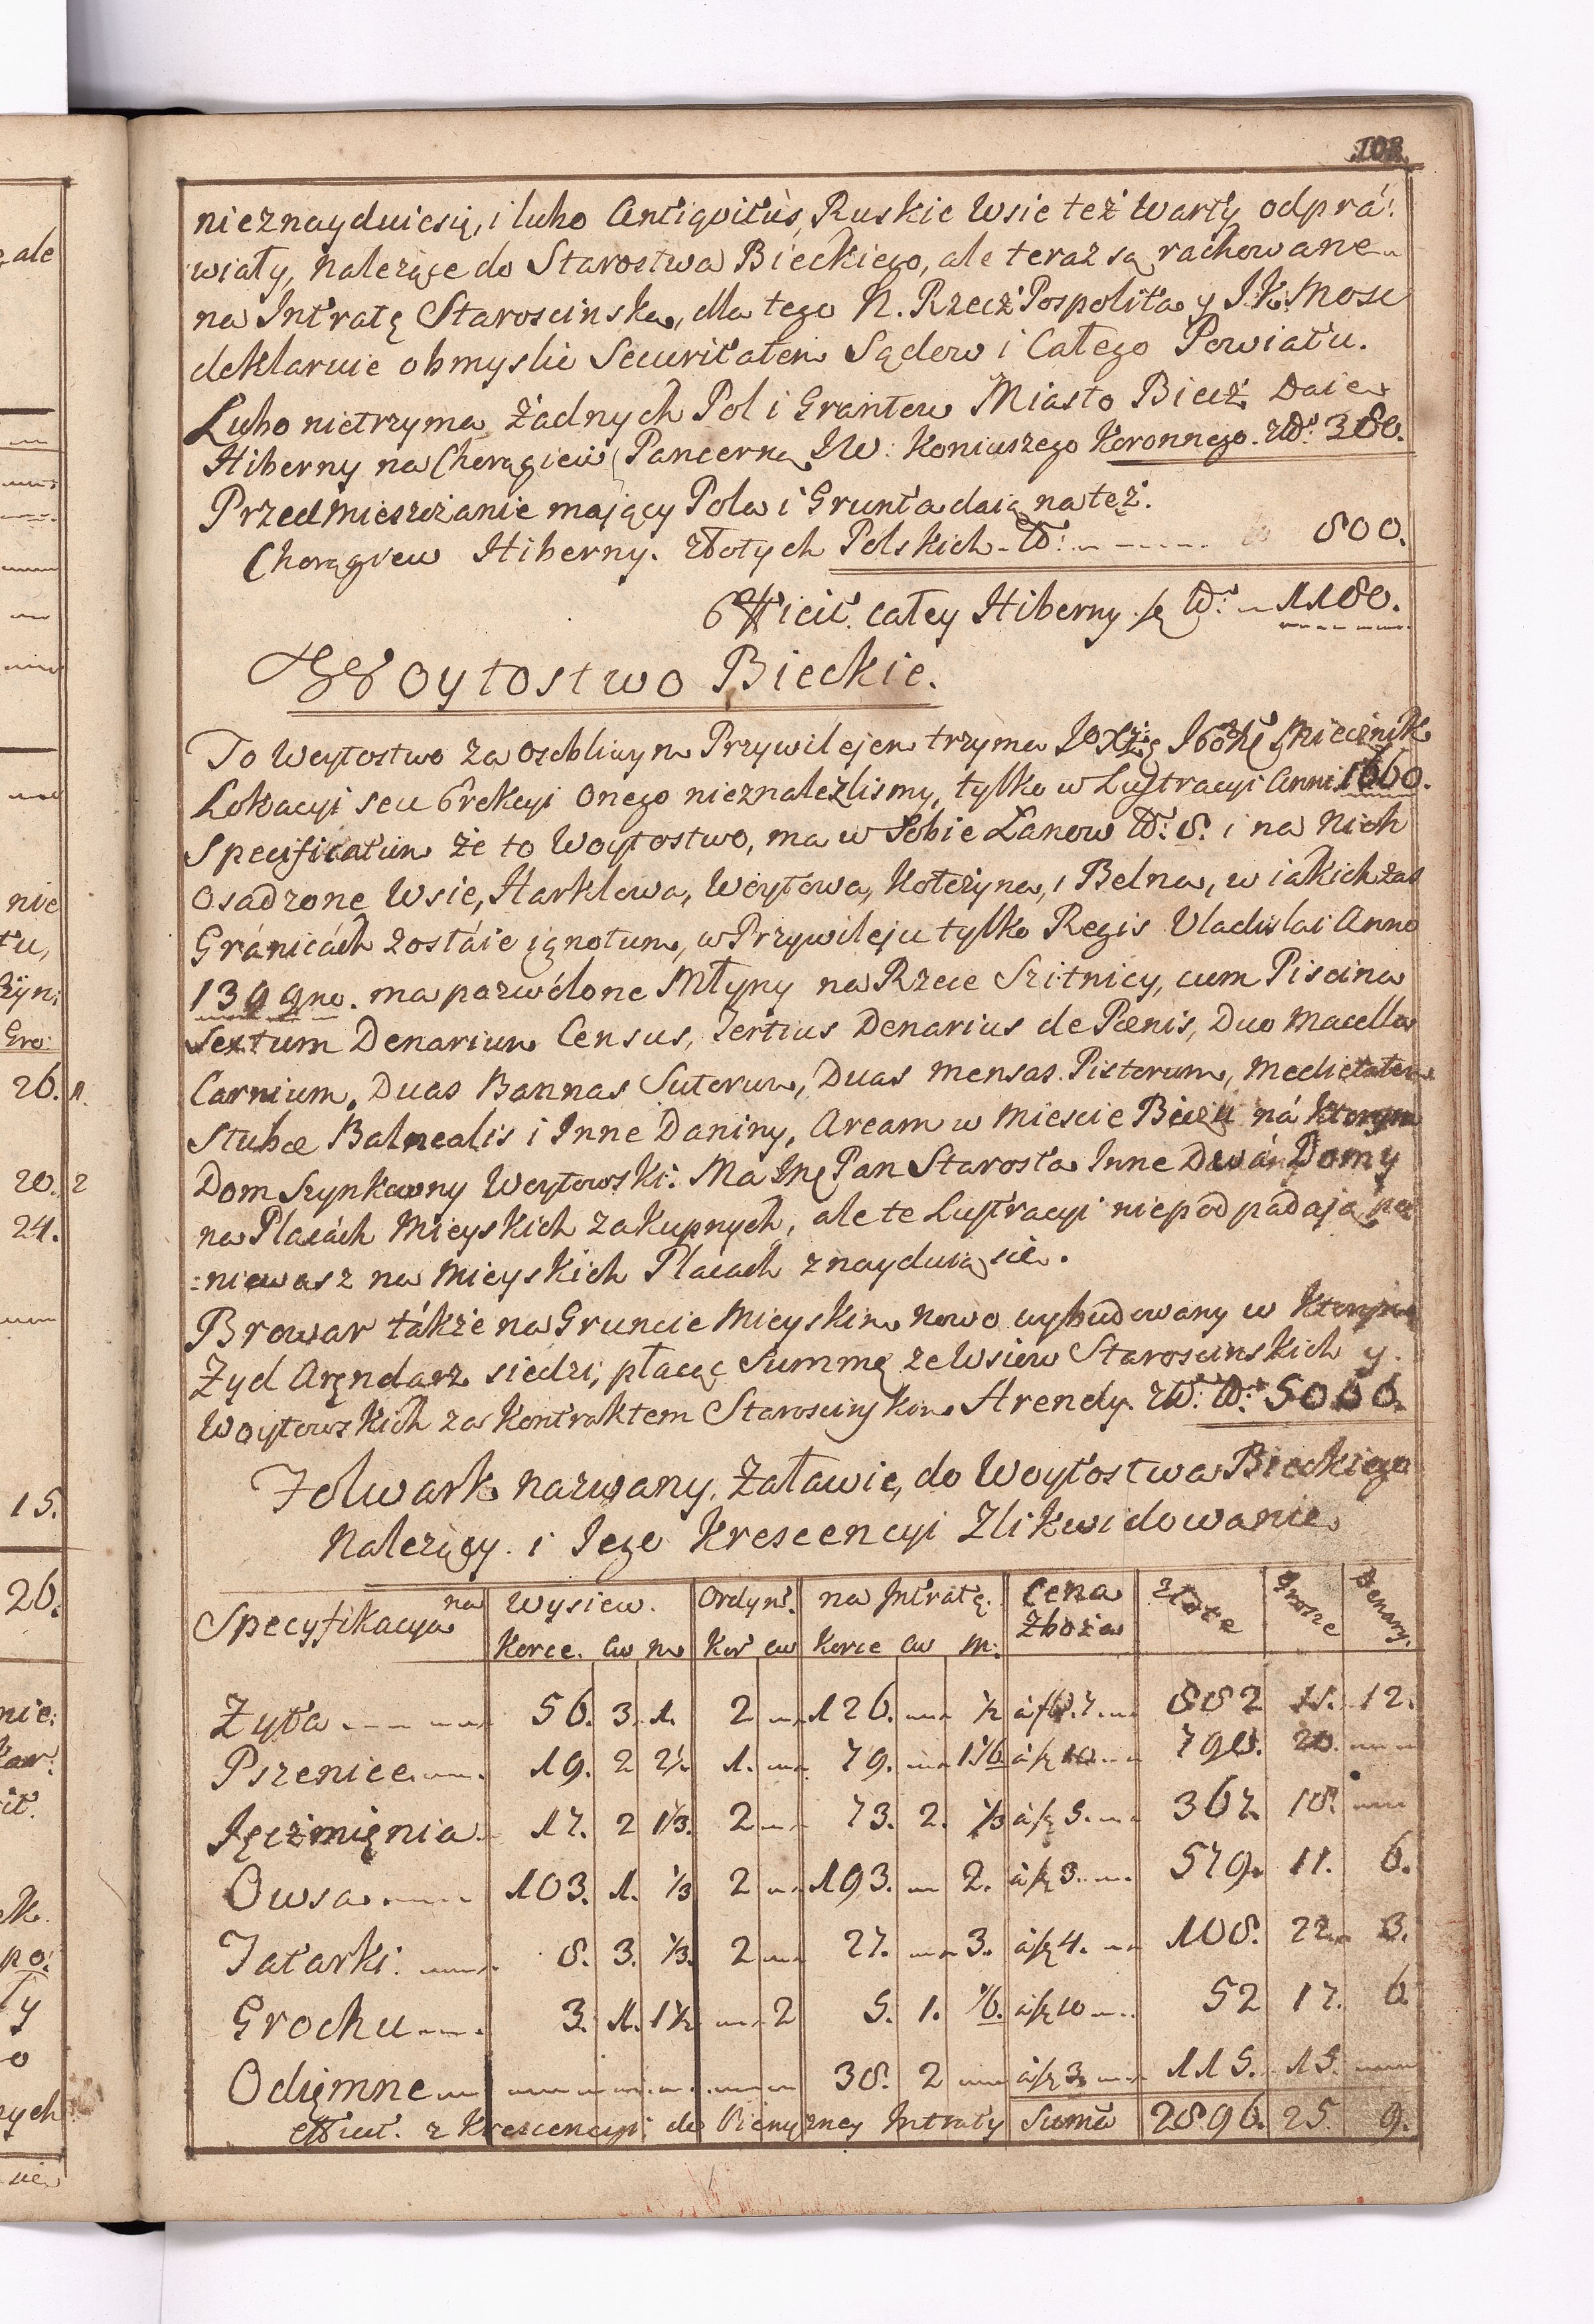 108.
nieznayduiesię, i lubo Antiqvitus, Ruskie Wsie też Warty odprá:
wiały, należące do Starostwa Bieckiego, ale teraz są rachowane
na Intratę Staroscinską, dla tego N. Rzecz Pospolita y J.K. Mosc
deklaruie obmyslic Securitatem Sądow i Całego Powiatu.
Lubo nietrzyma Żadnych Pol i Gruntow Miasto Biecz Daie
Hiberny na Chorągiew Pancerną JW: Koniuszego Koronnego. zł: 380.
Przedmieszczanie maiący Pola i Grunta daią na też.
Chorągiew Hiberny. złotych Polskich 800.
całey Hiberny 1180.
Woytostwo Bieckie.
To Woytostwo za osobliwym Przywilejem trzyma Miecznik
Lokacyi seu Erekcyi onego nieznalezlismy, tylko w Lustracyi Anni 1660.
Specificatum że to Woytostwo, ma w Sobie Łanow 8. i na Nich
osadzone Wsie, Harklowa, Woytowa, Kołczyna, i Belna, w iakich zas
Gránicách zostáie ignotum, w Przywileju tylko Regis Vladislai Anno
1399no. ma pozwolone Młyny na Rzece Szitnicy, cum Piscina
Sextum Denarium Census, Tertius Denarius de Pœnis, Duo Macella
Carnium, Duas Bannas Sutorum, Duas mensas Pistorum, Medietatem
Stubæ Balnealis i Inne Daniny, Aream w Miescie Bieczu ná Ktorym
Dom Szynkowny Woytowski. Ma Jmę Pan Starosta Inne Dwá Domy
na Placách Mieyskich zakupnych, ale te Lustracyi niepodpadaią po
:niewasz na Mieyskich Placach znayduią sie.
Browar tákże na Gruncie Mieyskim nowo wybudowany w Ktorym
Żyd Arędarz siedzi, płacąc Summę ze Wsiow Staroscinskich y
Woytowskich za Kontraktem Staroscinskim Arendy. 5000.
Folwark nazwany Załawie, do Woytostwa Bieckiego
Należący i Iego Krescencyi Zlikwidowanie
Specyfikacya na Wysiew. Ordyn. na Intratę. Cena Zboża Złote Grosze Denary.
Korce. cw m Kor cw Korce cw m:
Zyta 56. 3. 1. 2 126. ½ 7. 882 15. 12.
Pszenice 19. 2 2½ 1. 79. 1⅙ 10 790. 20.
Jęczmięnia 17. 2 1⅓. 2 73. 2. ⅓ 5. 367. 18.
Owsa 103. 1. ⅓ 2 193. 2. 3. 579. 11. 6.
Tatarki 8. 3. ⅓. 2 27. 3. 4. 108. 22. 3.
Grochu 3. 1. 1½ 2 5. 1. ⅙. 10 52 17. 6.
Odięmne 38. 2 3. 115. 15.
z Krescencyi do Intraty Suma 2896. 25. 9.